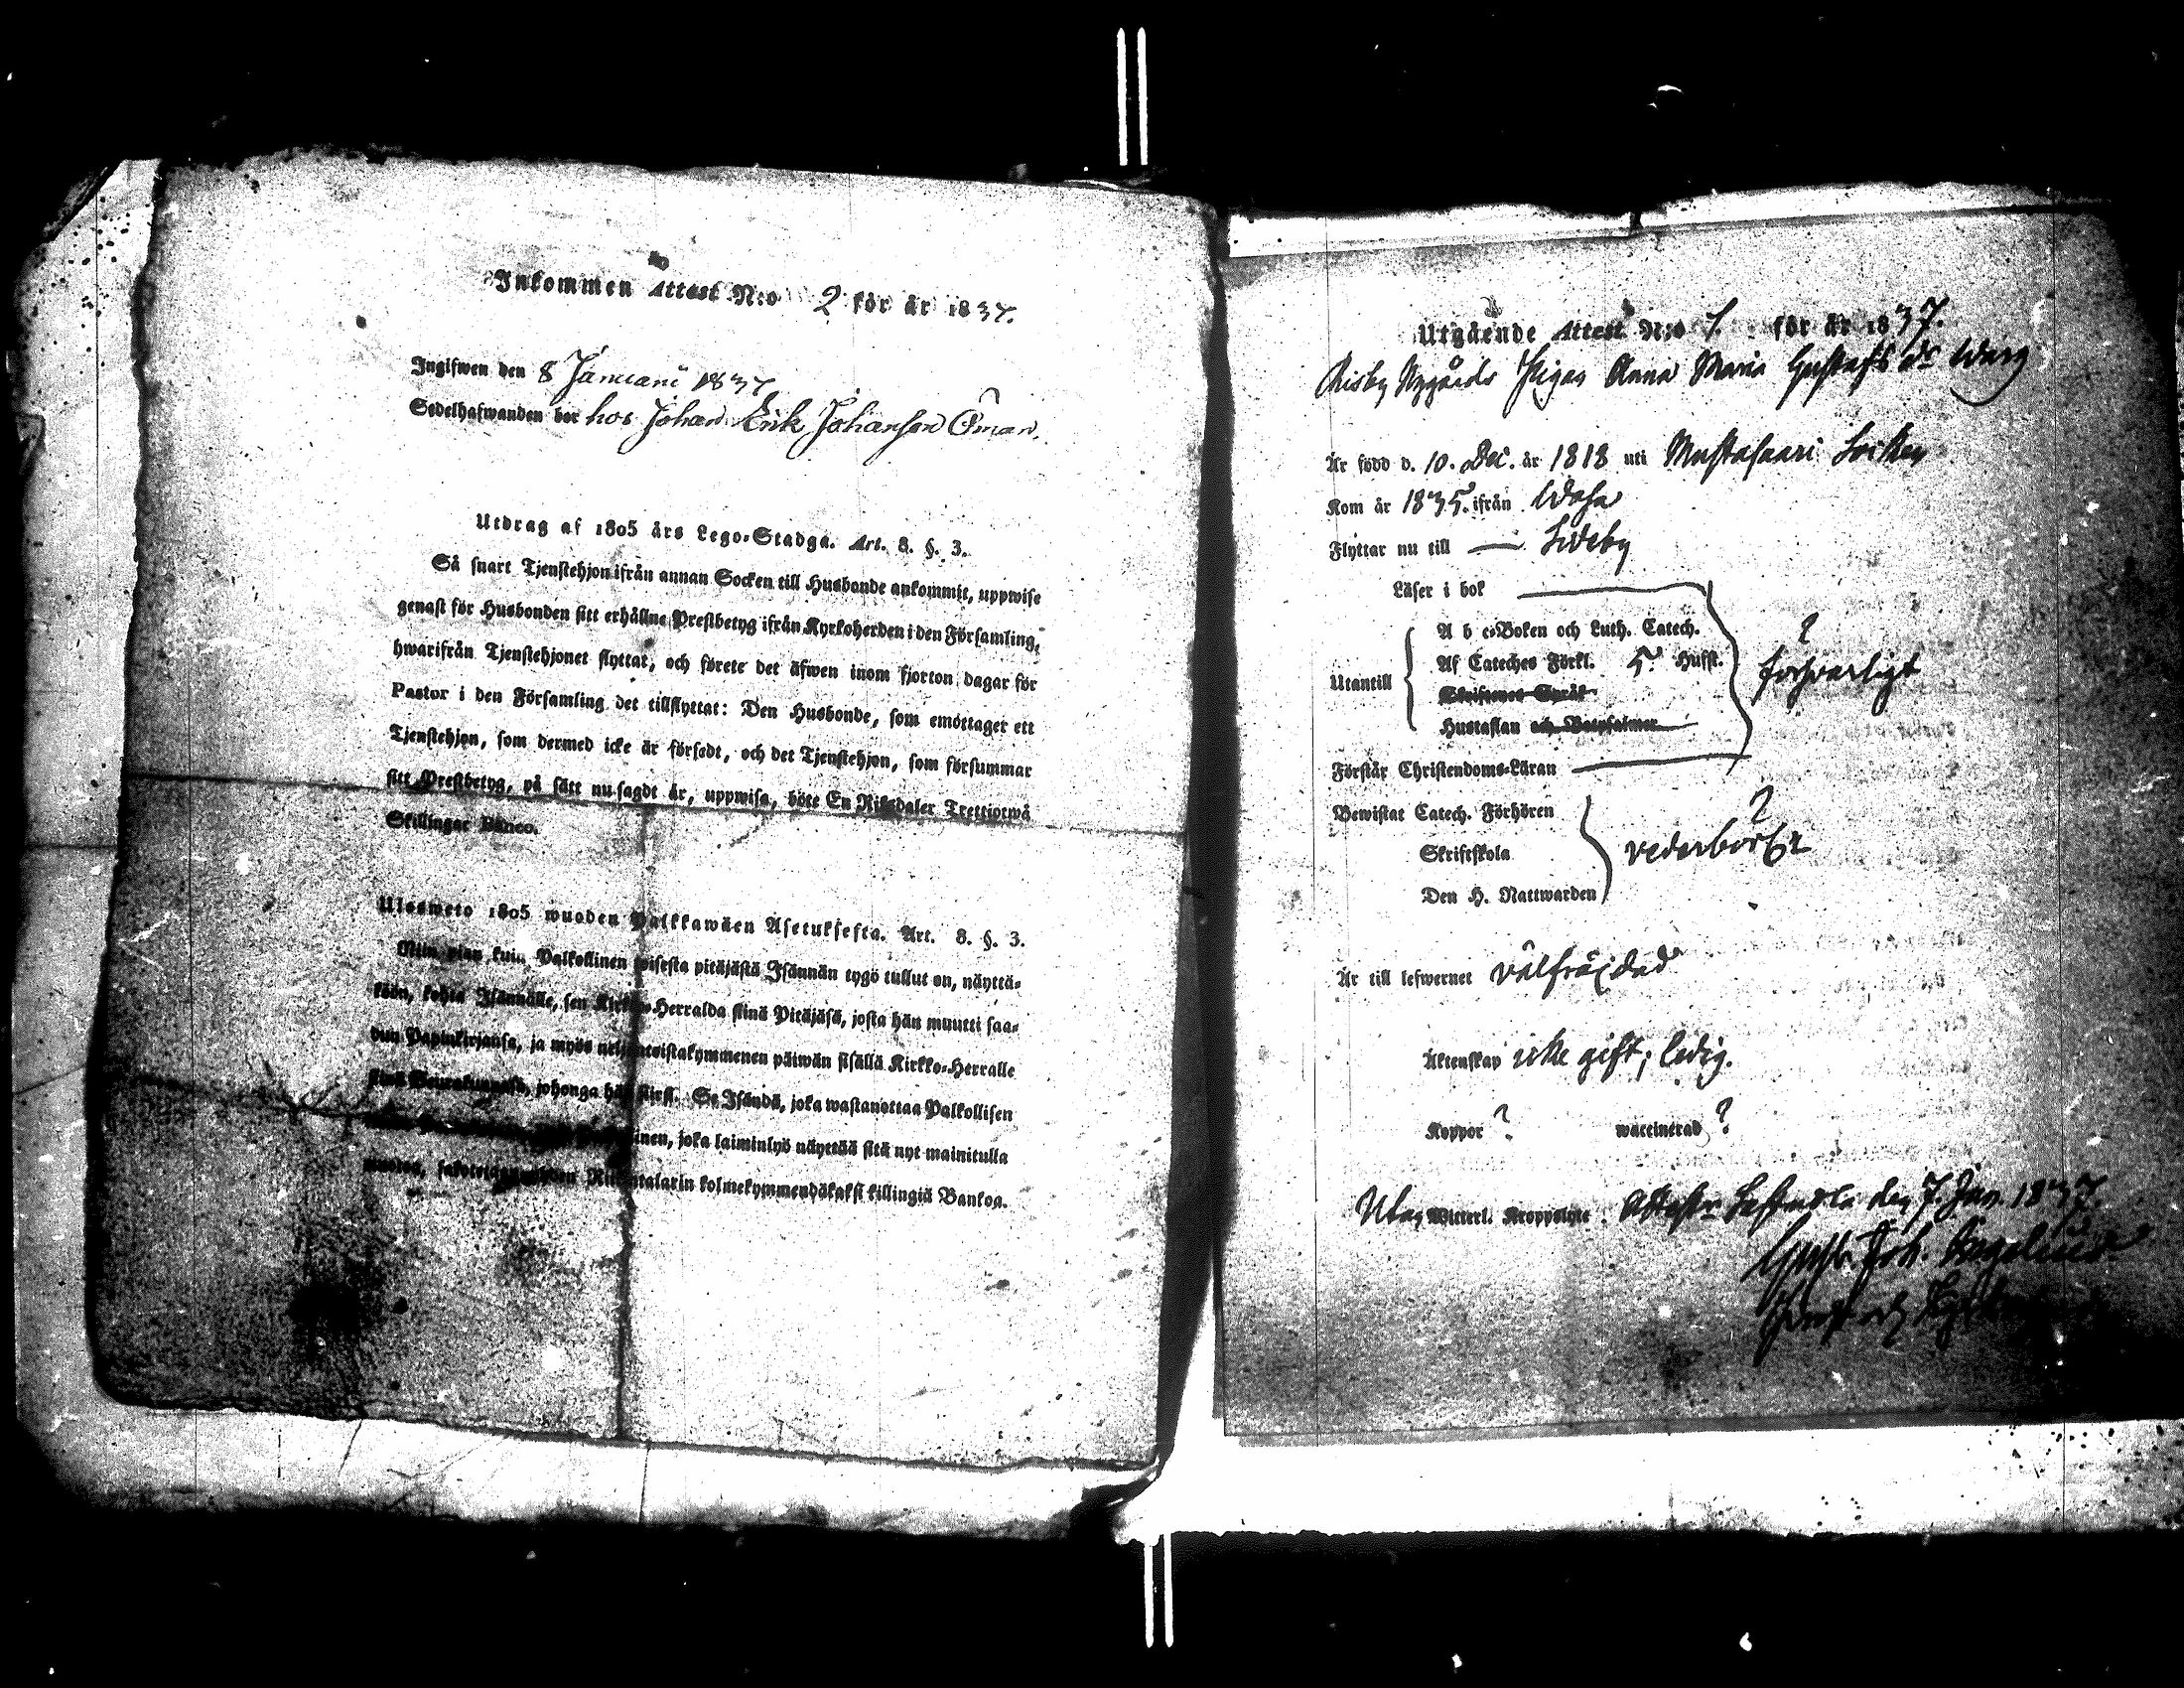 Inkommen Attest N:o 2 för år 1837.
Ingifwen den 8 Januarii 1837
Sedelhafwanden bor hos Johan Erik Johanson Öman.
Utdrag af 1805 års Lego-Stadga. Art. 8. §. 3.
Så snart Tjenstehjon ifrån annan Socken till Husbonde ankommit, uppwise
genast för Husbonden sitt erhållne Prestbetyg ifrån Kyrkoherden i den Församling,
hwarifrån Tjenstehjonet flyttat, och förete det äfwen inom fjorton dagar för
Pastor i den Församling det tillflyttat: Den Husbonde, som emottager ett
Tjenstehjon, som dermed icke är försedt, och det Tjenstehjon, som försummar
sitt Prestbetyg, på sätt nu sagdt är, uppwisa, böte En Riksdaler Trettiotwå
Skillingar Banco.
Ulosweto 1805 wuoden Palkkawäen Asetuksesta. Art. 8. §. 3.
Niin pian kuin Palkollinen toisesta pitäjästä Isännän tygö tullut on, näyttä-
köön, kohta Isännälle, sen Kirkko-Herralda siinä Pitäjäsä, josta hän muutti saa-
dun Papinkirjansa, ja myös neljäntoistakymmenen päiwän sisällä Kirkko-Herralle
siinä Seurakunnasa, johonga hän siirsi. Se Isändä, joka wastanottaa Palkollisen
joka laiminlyö näyttää sitä nyt mainitulla
muodon, kolmekymmendäkaksi killingiä Bankoa.
Utgående Attest N:o 1. för år 1837.
Risby Nygårds Pigan Anna Maria Gustafs dr Warg
Är född d. 10. Dec. år 1818 uti Mustasaari Socken
Kom år 1835. ifrån Wasa
Flyttar nu till — Sideby
Läser i bok
A b c-Boken och Luth. Catech.
Af Cateches Förkl. 5. Hufst.
Utantill
Skriftenes Språk
Hustaflan och Botpsalmer
försvarligt
Förstår Christendoms-Läran
Bewistat Catech. Förhören
Skriftskola
vederbörl
Den H. Nattwarden
Är till lefwernet välfräjdad
Äktenskap icke gift; ledig.
Koppor ? waccinerad ?
Utan Witterl. Kroppslyte. den 7. Jan. 1837.